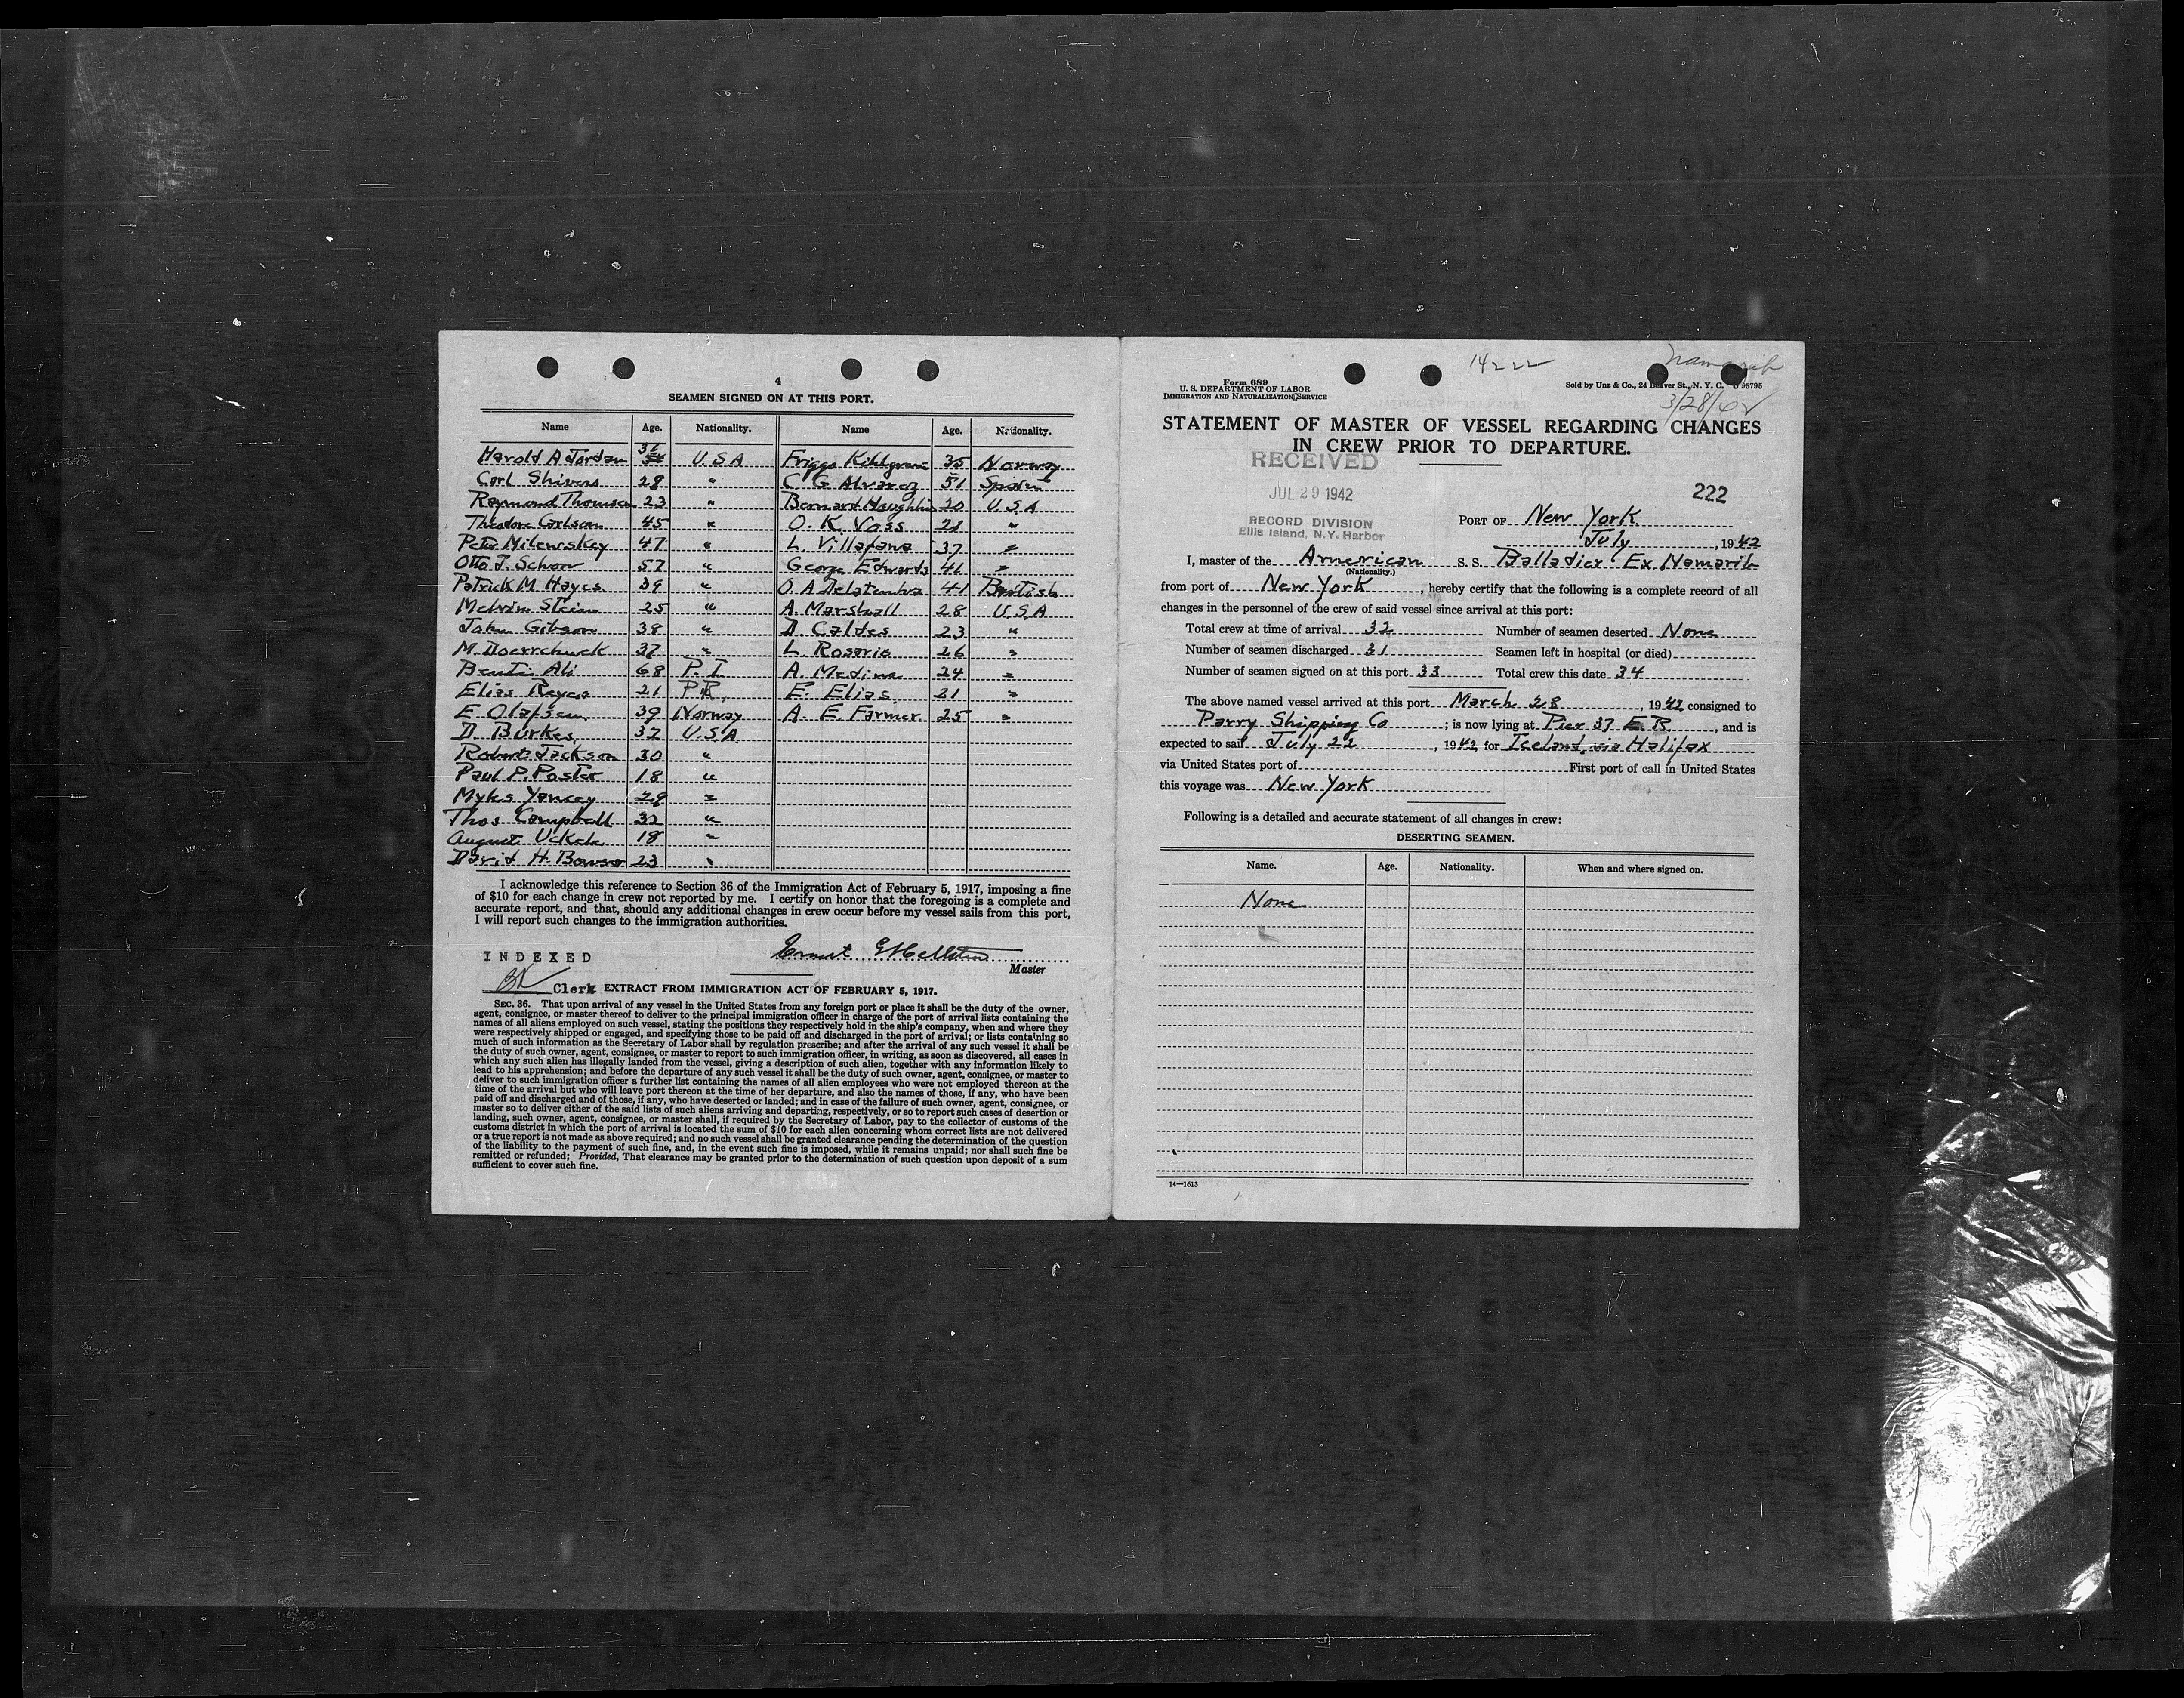 4
SEAMEN SIGNED ON AT THIS PORT.
Name Age. Nationality. Name Age. Nationality.
Harold A Jordan 36 U S A Friggo 35 Norway
Carl Shivers 28 " C G Alvarez 51 Spain
Raymond Thomsen 23 " Bernard 20 U.S.A
Theodore Carlson 45 " O. K. Voss 21 "
Peter Milewskey 47 " L. Villafana 37 "
Otto J. Schoor 57 " George Edwards 41 "
Patrick M Hayes 39 " O. A 41 British
Melvin Steine 25 " A. Marshall 28 U.S.A
John Gibson 38 " D. Caldes 23 "
M. Doerrchuck 37 " L. Rosario 26 "
Ali 68 P. I A. Medina 24 "
Elias Reyes 21 P R. E. Elias 21 "
E Olafsen 39 Norway A. E Farmer 25 "
D. Burkes 32 U.S.A.
Robert Jackson 30 "
Paul P. Poster 18 "
Myles Yancey 29 "
Thos Campbell 32 "
August 18 "
David H. 23 "
I acknowledge this reference to Section 36 of the Immigration Act of February 5, 1917, imposing a fine
of $10 for each change in crew not reported by me. I certify on honor that the foregoing is a complete and
accurate report, and that, should any additional changes in crew occur before my vessel sails from this port,
I will report such changes to the immigration authorities.
INDEXED
Master
Clerk EXTRACT FROM IMMIGRATION ACT OF FEBRUARY 5, 1917.
SEC. 36. That upon arrival of any vessel in the United States from any foreign port or place it shall be the duty of the owner,
agent, consignee, or master thereof to deliver to the principal immigration officer in charge of the port of arrival lists containing the
names of all aliens employed on such vessel, stating the positions they respectively hold in the ship's company, when and where they
were respectively shipped or engaged, and specifying those to be paid off and discharged in the port of arrival; or lists containing so
much of such information as the Secretary of Labor shall by regulation prescribe; and after the arrival of any such vessel it shall be
the duty of such owner, agent, consignee, or master to report to such immigration officer, in writing, as soon as discovered, all cases in
which any such alien has illegally landed from the vessel, giving a description of such alien, together with any information likely to
lead to his apprehension; and before the departure of any such vessel it shall be the duty of such owner, agent, consignee, or master to
deliver to such immigration officer a further list containing the names of all alien employees who were not employed thereon at the
time of the arrival but who will leave port thereon at the time of her departure, and also the names of those, if any, who have been
paid off and discharged and of those, if any, who have deserted or landed; and in case of the failure of such owner, agent, consignee, or
master so to deliver either of the said lists of such aliens arriving and departing, respectively, or so to report such cases of desertion or
landing, such owner, agent, consignee, or master shall, if required by the Secretary of Labor, pay to the collector of customs of the
customs district in which the port of arrival is located the sum of $10 for each alien concerning whom correct lists are not delivered
or a true report is not made as above required; and no such vessel shall be granted clearance pending the determination of the question
of the liability to the payment of such fine, and, in the event such fine is imposed, while it remains unpaid; nor shall such fine be
remitted or refunded; Provided, That clearance may be granted prior to the determination of such question upon deposit of a sum
sufficient to cover such fine.
14222
Form 689
U. S. DEPARTMENT OF LABOR
IMMIGRATION AND NATURALIZATION SERVICE
Sold by Unz & Co., 24 Beaver St., N. Y. C. 95795
3/28/42
STATEMENT OF MASTER OF VESSEL REGARDING CHANGES
IN CREW PRIOR TO DEPARTURE.
RECEIVED
JUL 29 1942
222
RECORD DIVISION
Ellis Island, N.Y. Harbor
PORT OF New York
July, 1942
I, master of the American S. S. Balladier Ex Namarib
(Nationality.)
from port of New York, hereby certify that the following is a complete record of all
changes in the personnel of the crew of said vessel since arrival at this port:
Total crew at time of arrival 32 Number of seamen deserted None
Number of seamen discharged 31 Seamen left in hospital (or died)
Number of seamen signed on at this port 33 Total crew this date 34
The above named vessel arrived at this port March 28, 1942 consigned to
Parry Shipping Co; is now lying at Pier 37 E. R., and is
expected to sail July 22, 1942 for Iceland, via Halifax
via United States port of First port of call in United States
this voyage was New York
Following is a detailed and accurate statement of all changes in crew:
DESERTING SEAMEN.
Name. Age. Nationality. When and where signed on.
None
14—1613